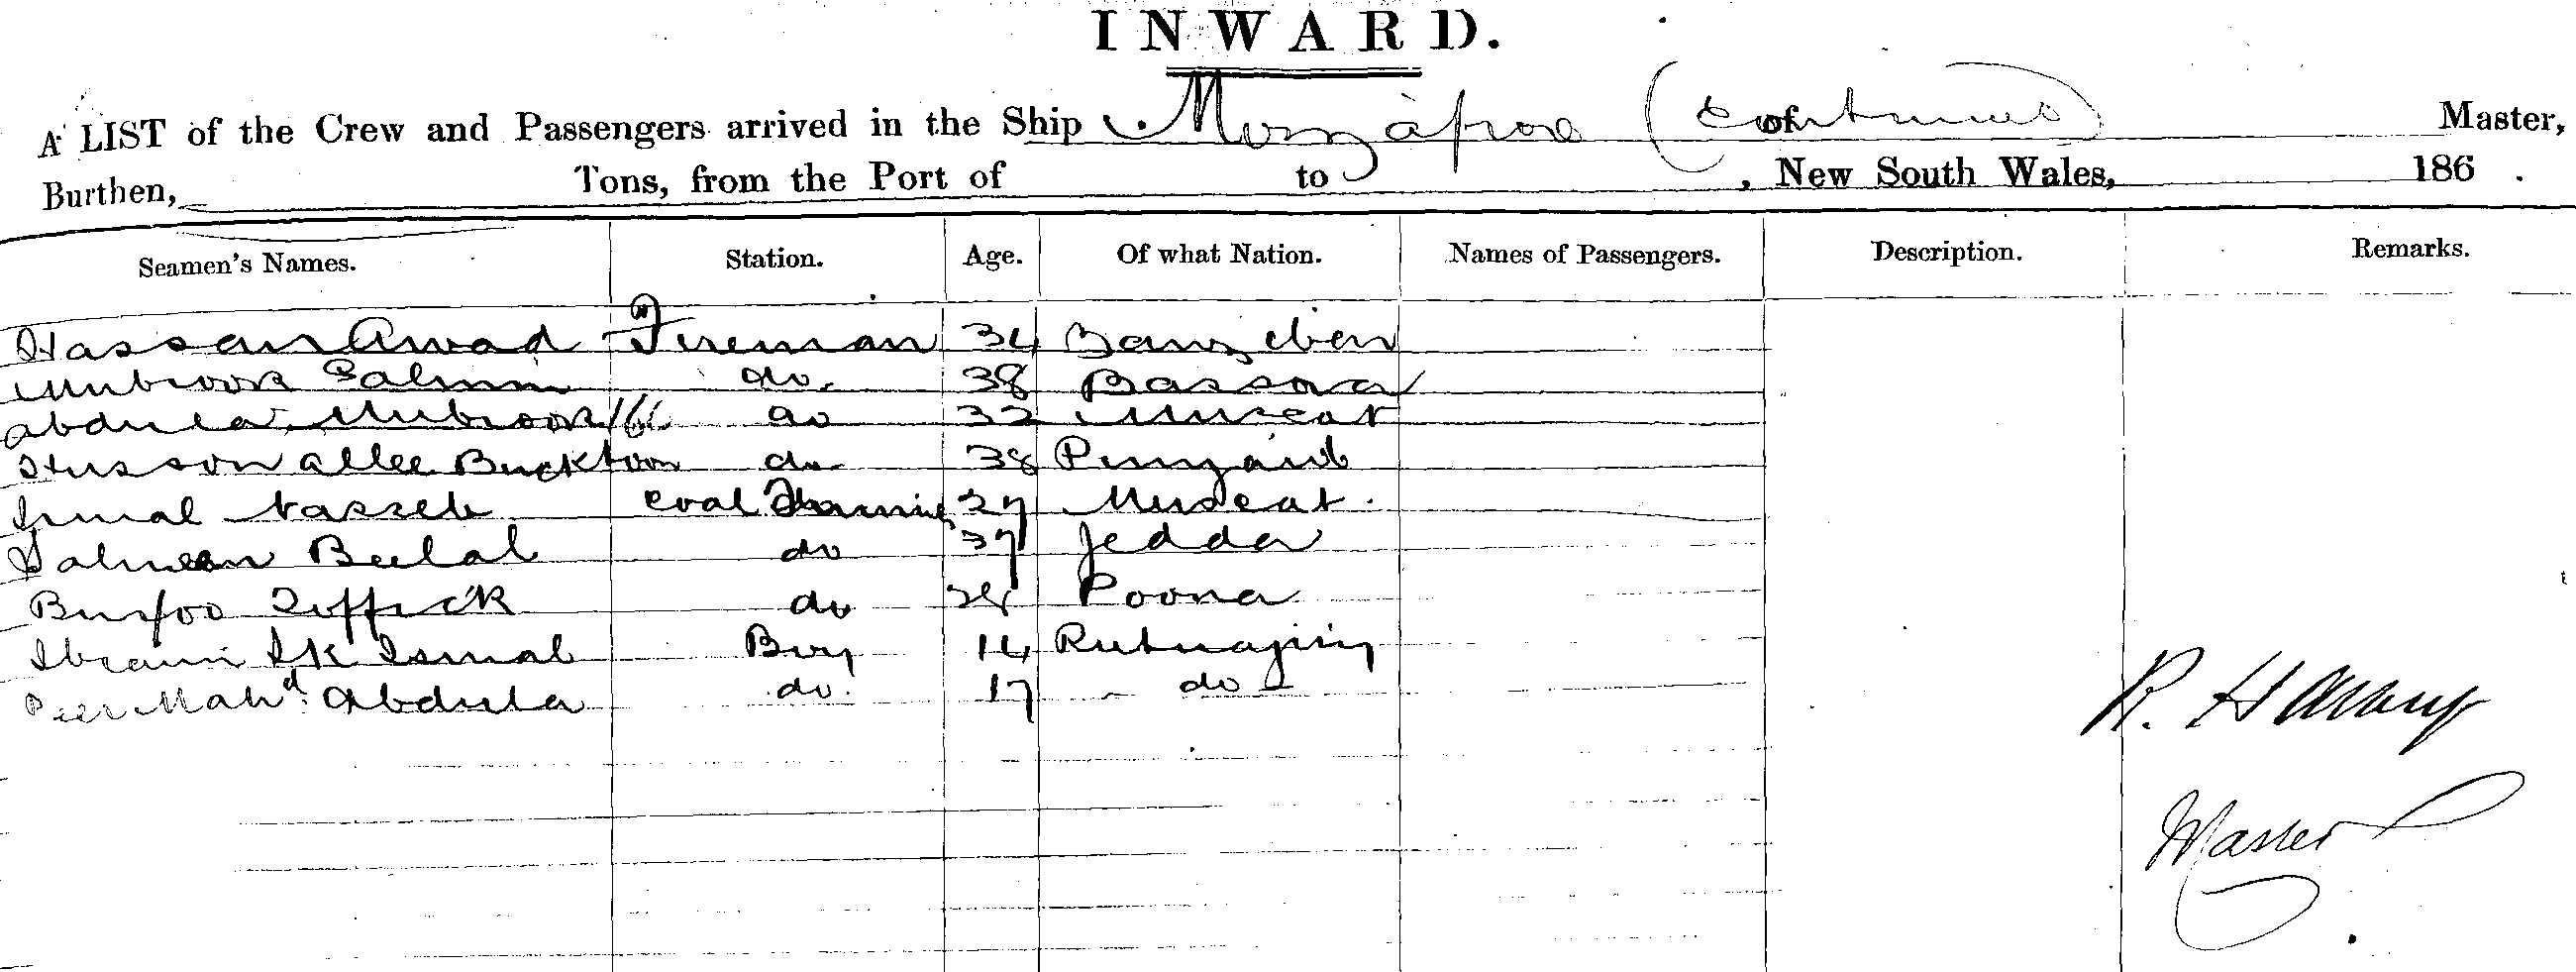 INWARD.
A LIST of the Crew and Passengers arrived in the Ship Mirzapore (Continued) of Master,
Burthen, Tons, from the Port of to , New South Wales, 186 .
Seamen's Names. Station. Age. Of what Nation. Names of Passengers. Description. Remarks.
Hassan Awad Fireman 34 Zanzeber
Mubrook Salmin do. 38 Bassora
Abdula Mubrook do 32 Muscat
Husson Allee do 38 Punjaub
Ismal Nasseb Coal 27 Muscat
Salmeen Belal do 37 Jedda
do Poona
Ibraim Sk Ismal Boy 14
Peer Mahd. Abdula do. 17 do
R.
Master